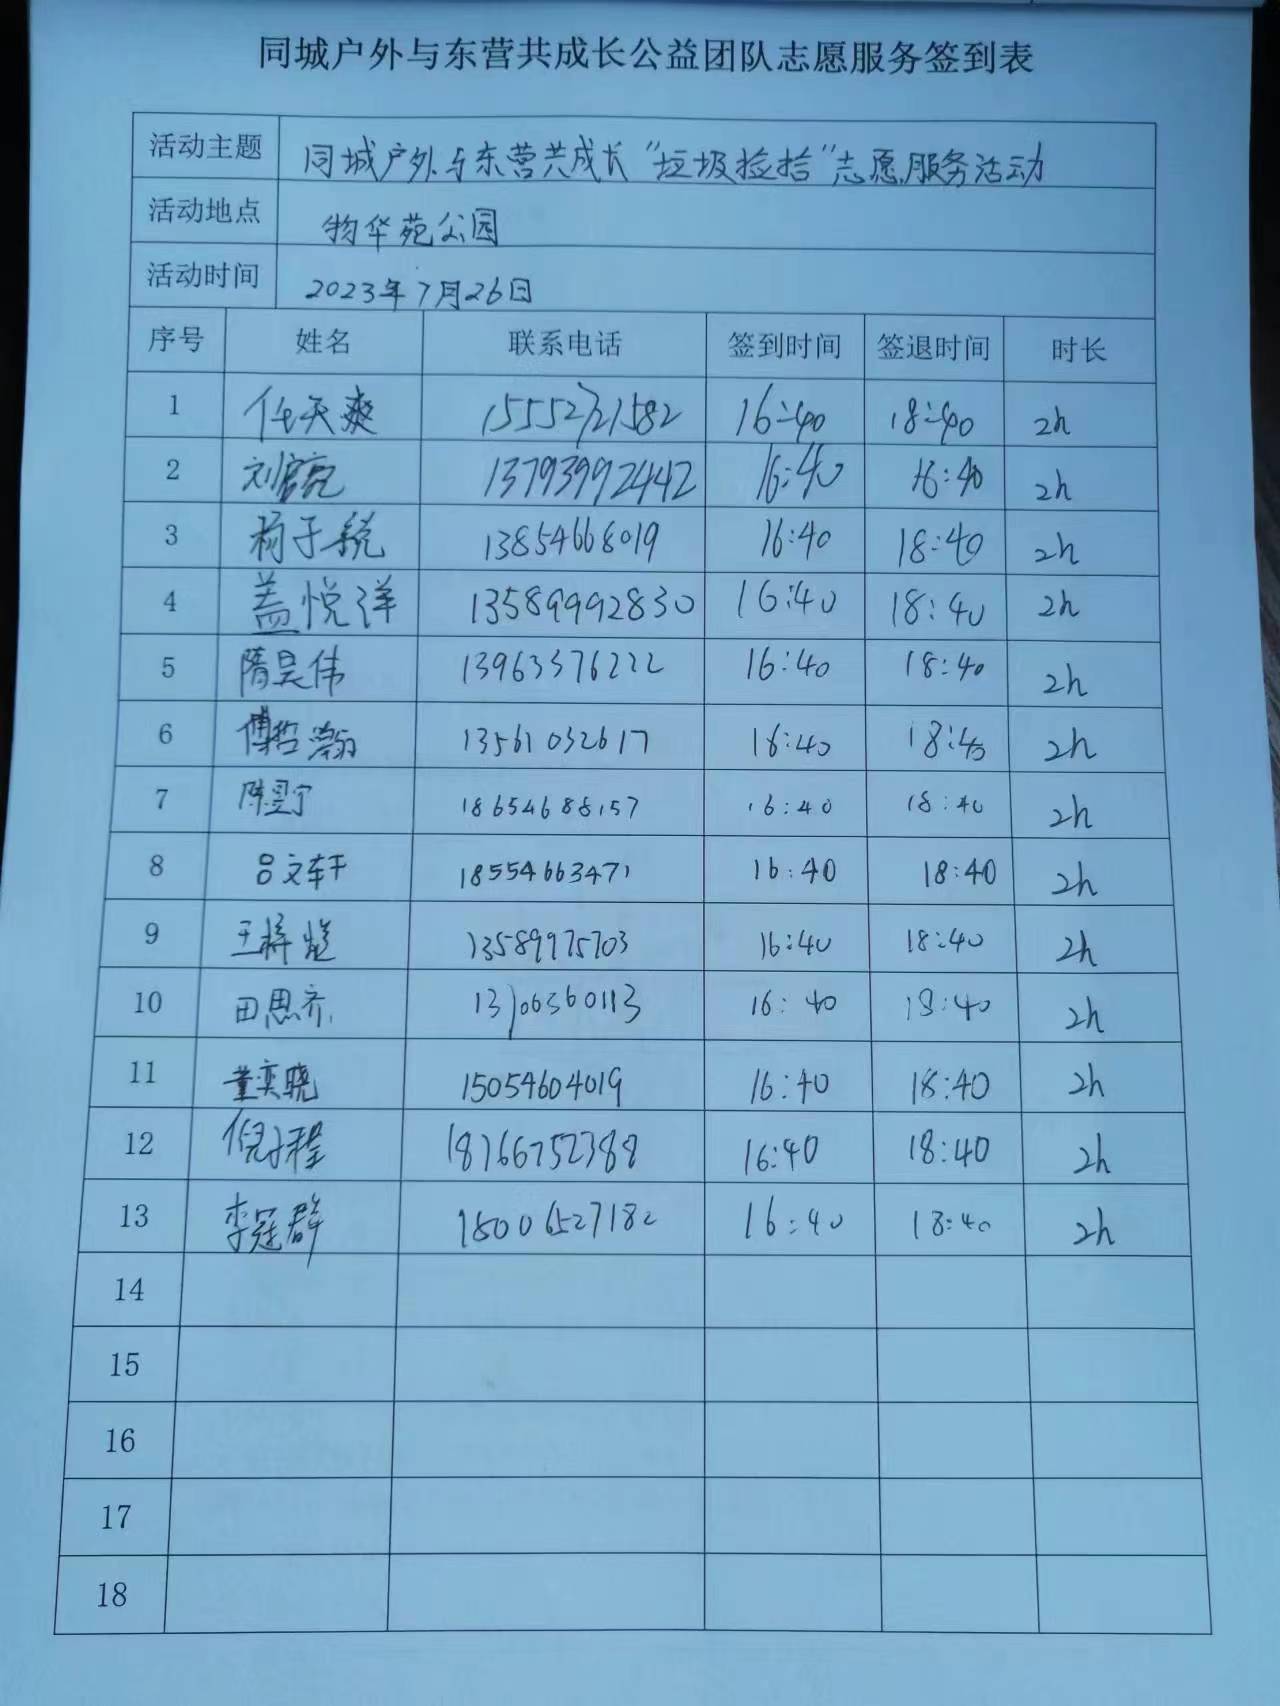 同城户外与东营共成长公益团队志愿服务签到表
活动主题 同城户外与东营共成长“垃圾捡拾”志愿服务活动
活动地点 物华苑公园
活动时间 2023年7月26日
序号 姓名 联系电话 签到时间 签退时间 时长
1 任天爽 15552721582 16:40 18:40 2h
2 刘官亮 13793992442 16:40 16:40 2h
3 杨子锐 13854668019 16:40 18:40 2h
4 盖悦洋 13589992830 16:40 18:40 2h
5 隋昊伟 13963376222 16:40 18:40 2h
6 傅哲瀚 13561032617 16:40 18:40 2h
7 陈昱宁 18654688157 16:40 18:40 2h
8 吕文轩 18554663471 16:40 18:40 2h
9 王梓 13589975703 16:40 18:40 2h
10 田思齐 13106360113 16:40 18:40 2h
11 董奕晓 15054604019 16:40 18:40 2h
12 倪子程 18766752388 16:40 18:40 2h
13 李冠群 15006527182 16:40 18:40 2h
14
15
16
17
18